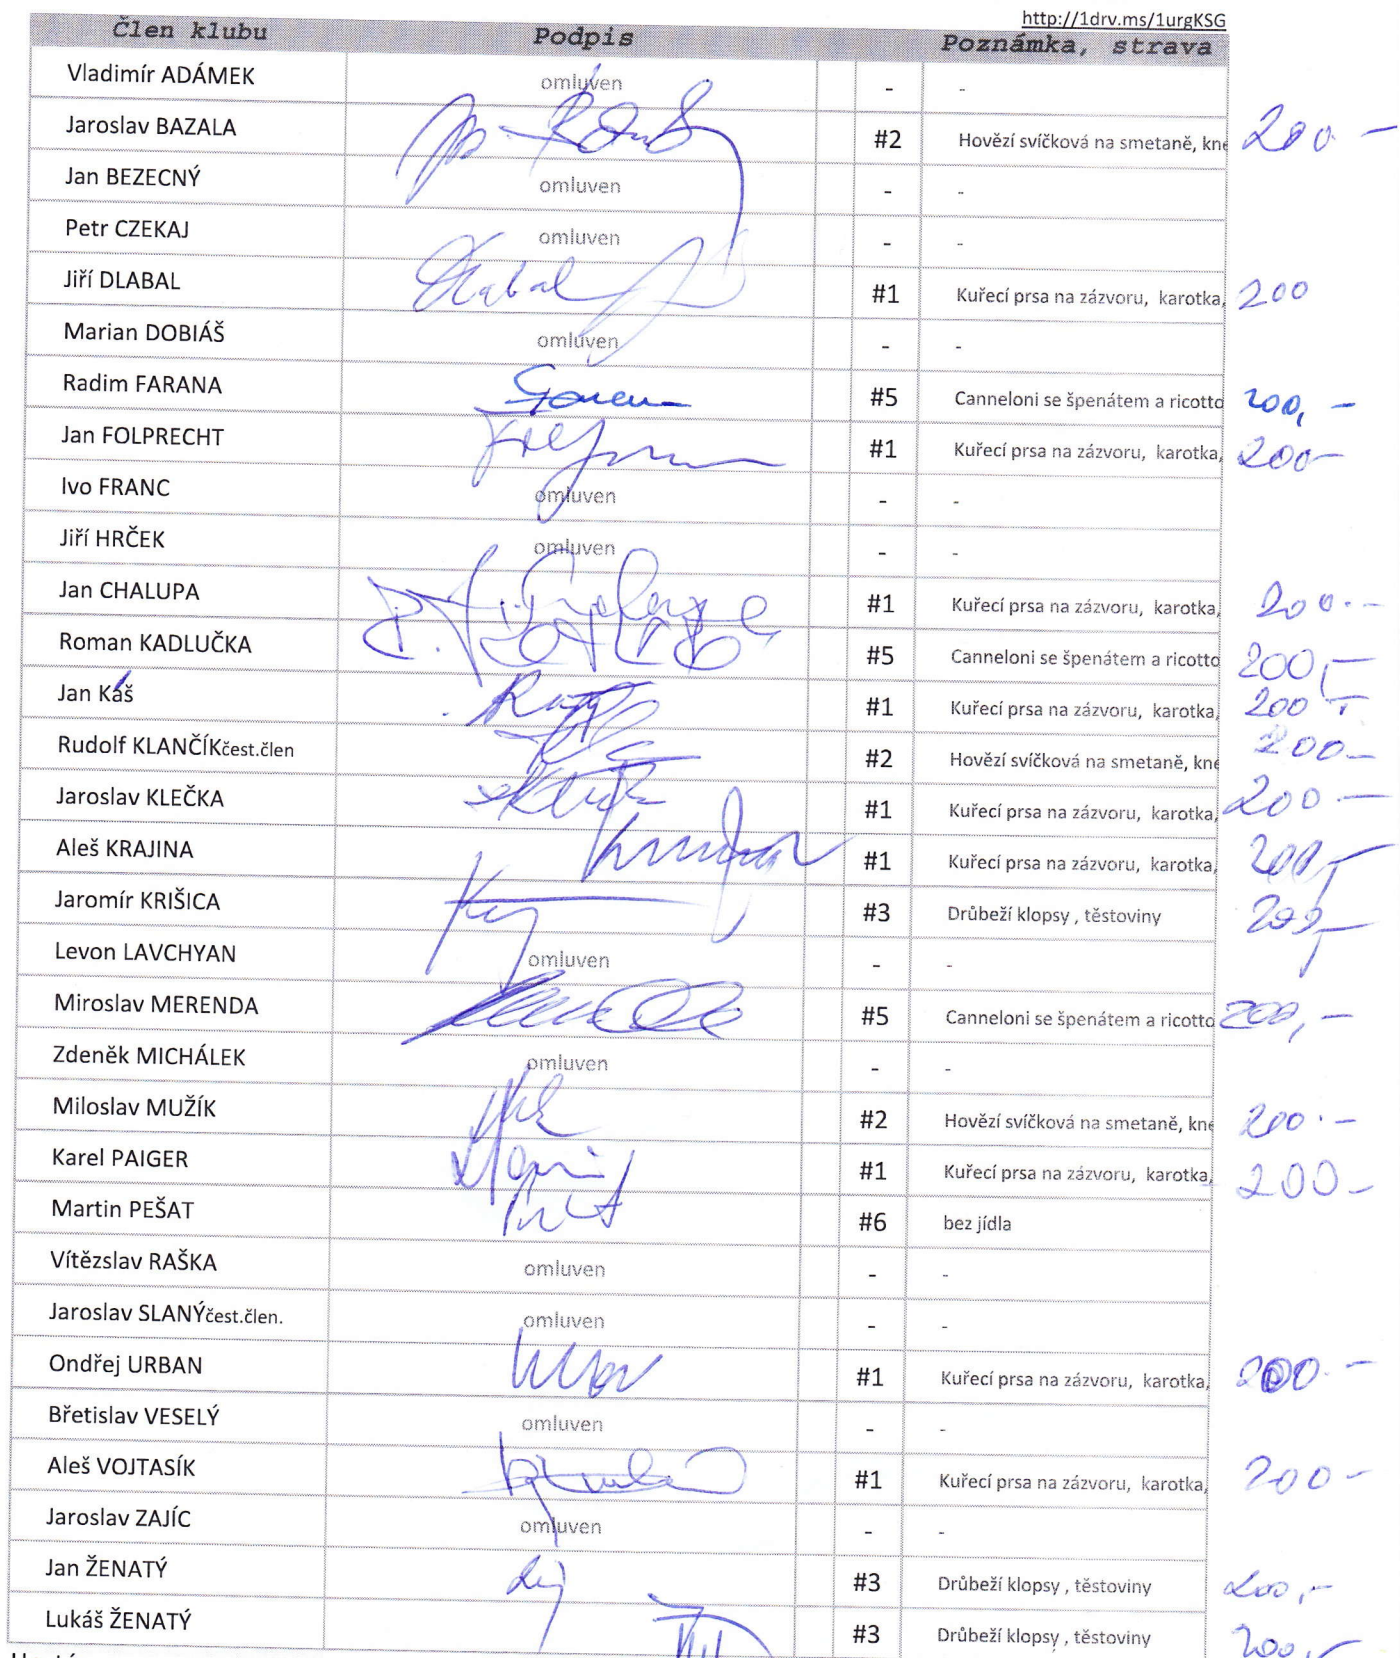 http://1drv.ms/1urgKSG
Člen klubu Podpis Poznámka, strava
Vladimír ADÁMEK omluven - -
Jaroslav BAZALA #2 Hovězí svíčková na smetaně, kne 200.-
Jan BEZECNÝ omluven - -
Petr CZEKAJ omluven - -
Jiří DLABAL Dlabal #1 Kuřecí prsa na zázvoru, karotka, 200
Marian DOBIÁŠ omluven - -
Radim FARANA #5 Canneloni se špenátem a ricotto 200,-
Jan FOLPRECHT #1 Kuřecí prsa na zázvoru, karotka, 200-
Ivo FRANC omluven - -
Jiří HRČEK omluven - -
Jan CHALUPA #1 Kuřecí prsa na zázvoru, karotka, 200.-
Roman KADLUČKA #5 Canneloni se špenátem a ricotto 200,-
Jan Káš #1 Kuřecí prsa na zázvoru, karotka, 200,-
Rudolf KLANČÍKčest.člen #2 Hovězí svíčková na smetaně, kne 200-
Jaroslav KLEČKA #1 Kuřecí prsa na zázvoru, karotka, 200.-
Aleš KRAJINA #1 Kuřecí prsa na zázvoru, karotka, 200,-
Jaromír KRIŠICA #3 Drůbeží klopsy , těstoviny 200,-
Levon LAVCHYAN omluven - -
Miroslav MERENDA #5 Canneloni se špenátem a ricotto 200,-
Zdeněk MICHÁLEK omluven - -
Miloslav MUŽÍK #2 Hovězí svíčková na smetaně, kne 200.-
Karel PAIGER #1 Kuřecí prsa na zázvoru, karotka, 200-
Martin PEŠAT #6 bez jídla
Vítězslav RAŠKA omluven - -
Jaroslav SLANÝčest.člen. omluven - -
Ondřej URBAN #1 Kuřecí prsa na zázvoru, karotka, 200.-
Břetislav VESELÝ omluven - -
Aleš VOJTASÍK #1 Kuřecí prsa na zázvoru, karotka, 200-
Jaroslav ZAJÍC omluven - -
Jan ŽENATÝ #3 Drůbeží klopsy , těstoviny 200,-
Lukáš ŽENATÝ #3 Drůbeží klopsy , těstoviny 200,-